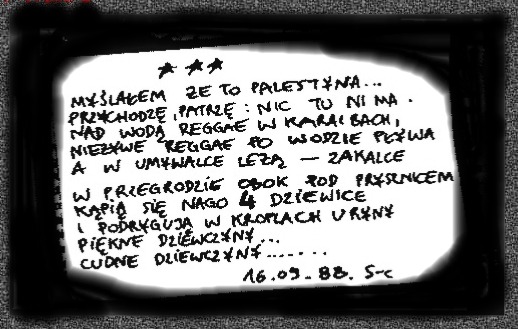 ★ ★★
MYŚLAŁEM ŻE TO PALESTYNA...
PRZYCHODZĘ, PATRZĘ: NIC TU NI MA.
NAD WODĄ REGGAE W KARAIBACH,
NIEŻYWE REGGAE PO WODZIE PŁYWA
A W UMYWALCE LEŻĄ — ZAKALCE
W PRZEGRODZIE OBOK POD PRYSZNICEM
KĄPIĄ SIĘ NAGO 4 DZIEWICE
I PODRYGUJĄ W KROPLACH URYNY
PIĘKNE DZIEWCZYNY...
CUDNE DZIEWCZYNY.......
16.09.88. S-c